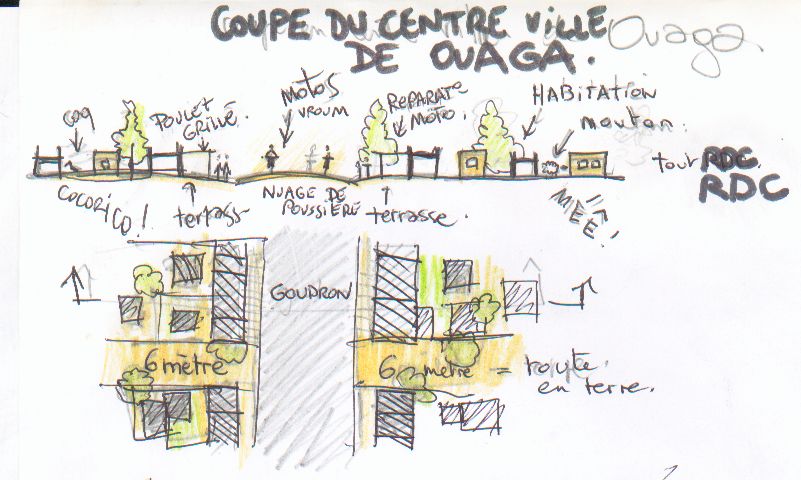 COUPE DU CENTRE VILLE
DE OUAGA.
Ouaga
COQ
POULET
GRILLÉ.
MOTOS
VROUM
REPARATo
MOTO.
HABITATION
mouton.
tout RDC.
RDC
COCORICO!
terrass
NUAGE DE
POUSSIÈRE
terrasse.
MÉÉ!
GOUDRON
6 mètre
6 mètre = route
en terre.